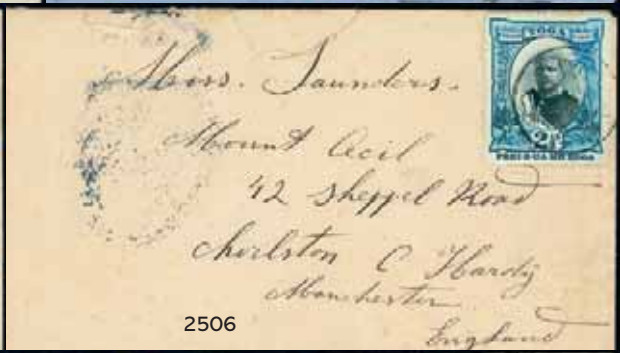 TOGA
2½
Mrs. Saunders.
Mount Cecil
42 Sheppel Road
Chorlston C Hardy
Manchester
England
2506